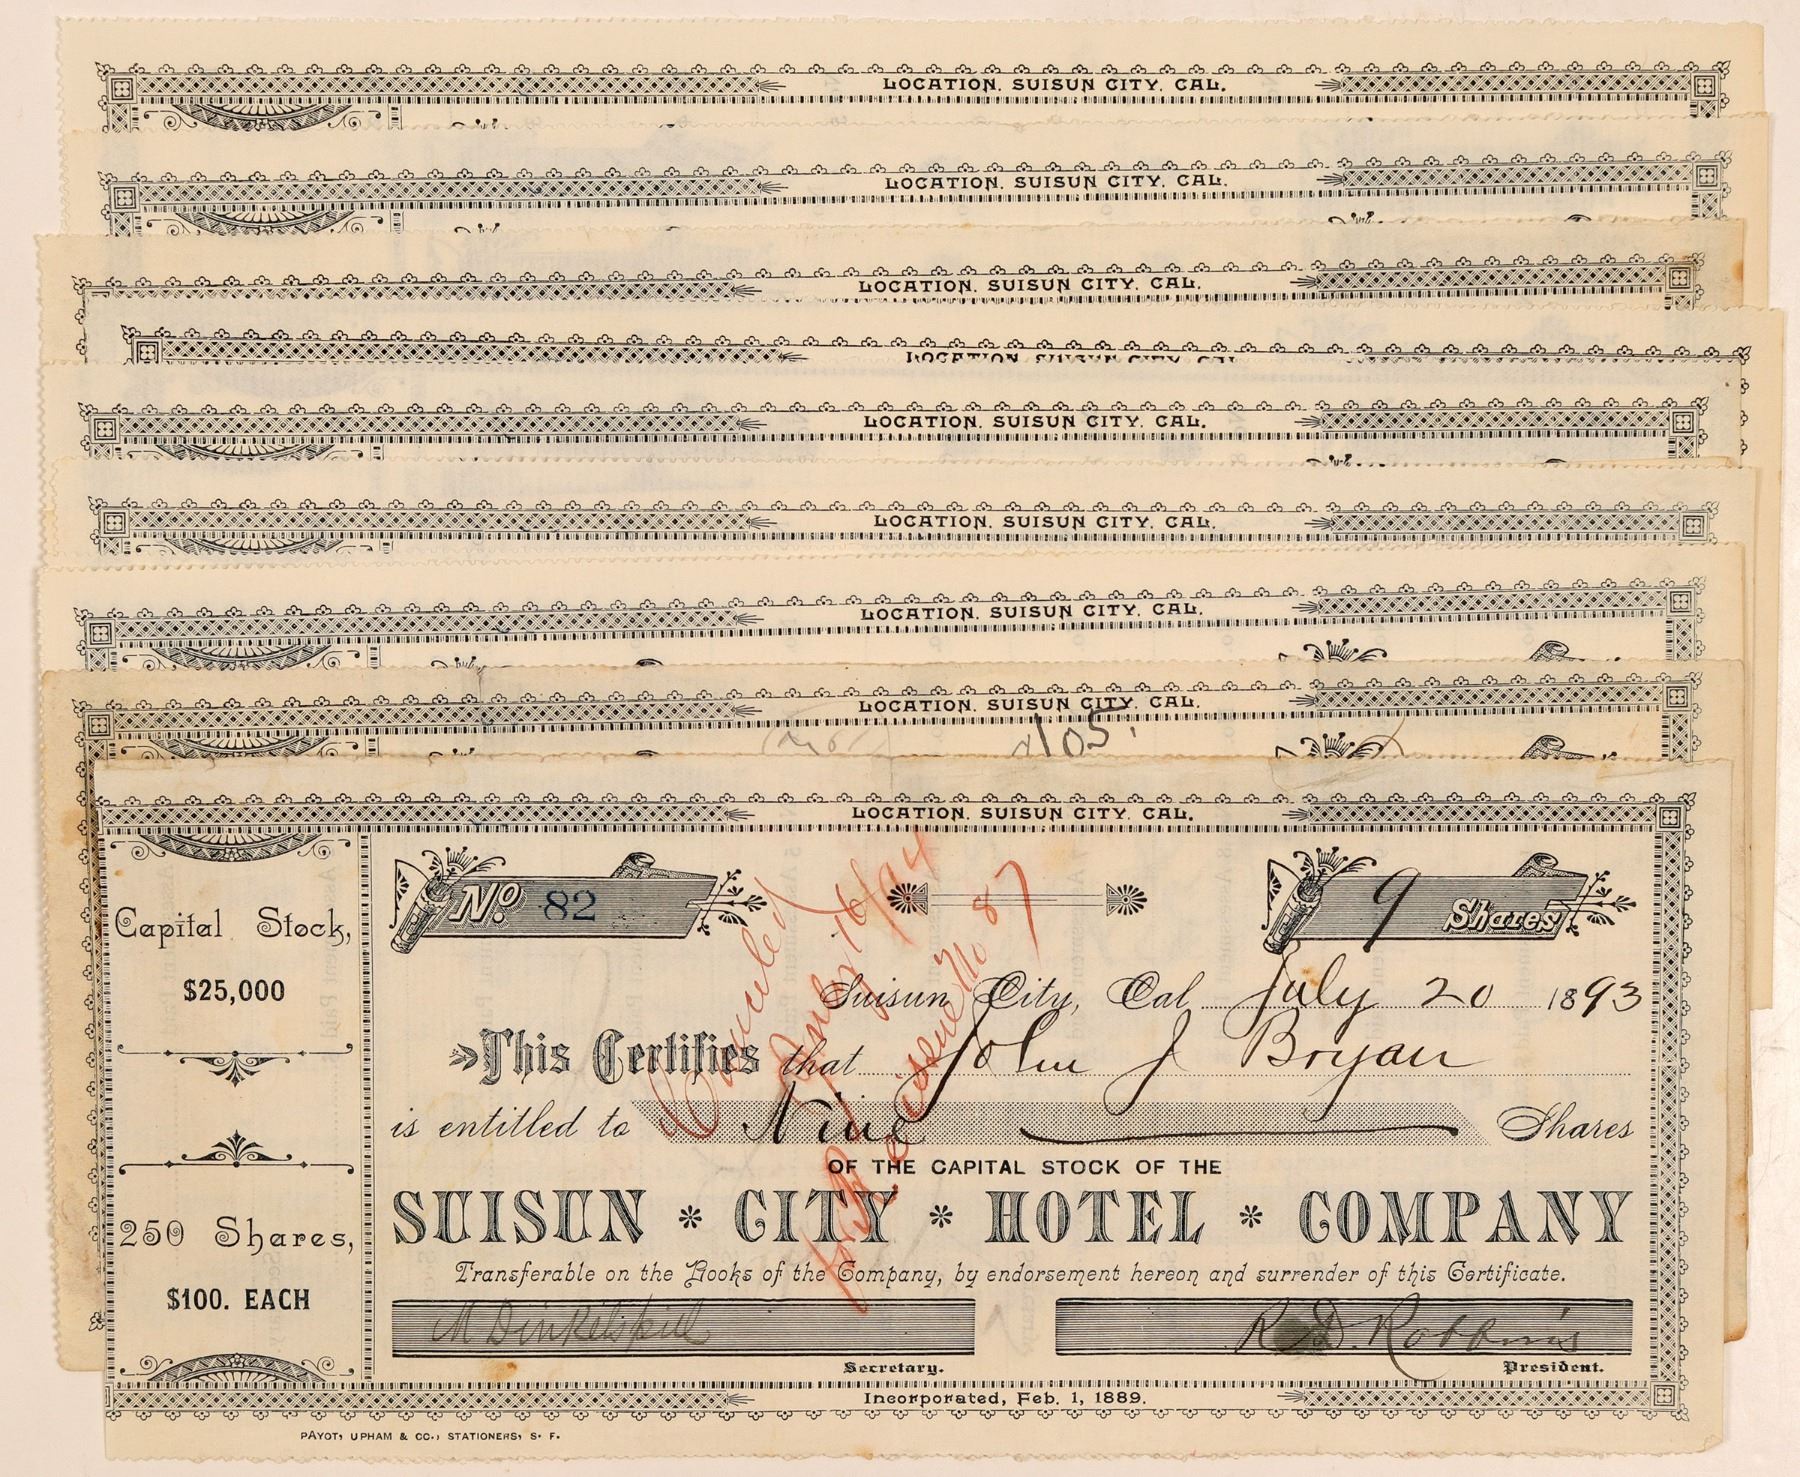 LOCATION. SUISUN CITY. CAL.
LOCATION. SUISUN CITY. CAL.
LOCATION. SUISUN CITY. CAL.
LOCATION. SUISUN CITY. CAL.
LOCATION. SUISUN CITY. CAL.
LOCATION. SUISUN CITY. CAL.
LOCATION. SUISUN CITY. CAL.
LOCATION. SUISUN CITY. CAL.
105.
LOCATION. SUISUN CITY. CAL.
No. 82
9 Shares
Capital Stock,
$25,000
250 Shares,
$100. EACH
Suisun City, Cal. July 20 1893
This Certifies that John J Bryan
is entitled to Nine Shares
OF THE CAPITAL STOCK OF THE
SUISUN * CITY * HOTEL * COMPANY
Transferable on the Books of the Company, by endorsement hereon and surrender of this Certificate.
M Dinkelspiel
R. D. Robbins
Secretary.
President.
Incorporated, Feb. 1, 1889.
PAYOT, UPHAM & CO., STATIONERS, S. F.
Canceled
87